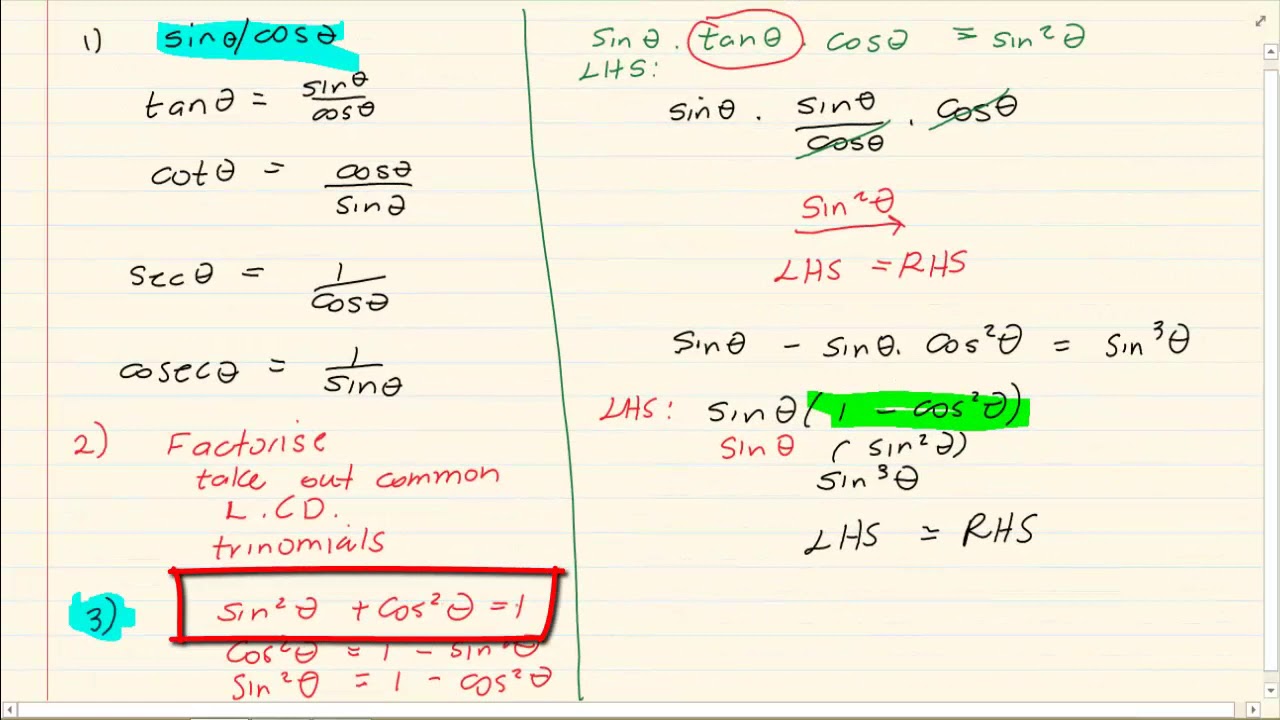 1) sinθ/cosθ
tanθ = sinθ/cosθ
cotθ = cosθ/sinθ
secθ = 1/cosθ
cosecθ = 1/sinθ
2) Factorise
take out common
L.CD.
trinomials
3) sin²θ + cos²θ = 1
cos²θ = 1 - sin²θ
sin²θ = 1 - cos²θ
sinθ . tanθ . cosθ = sin²θ
LHS:
sinθ . sinθ/cosθ . cosθ
sin²θ
LHS = RHS
sinθ - sinθ. cos²θ = sin³θ
LHS: sinθ(1 - cos²θ)
sinθ (sin²θ)
sin³θ
LHS = RHS